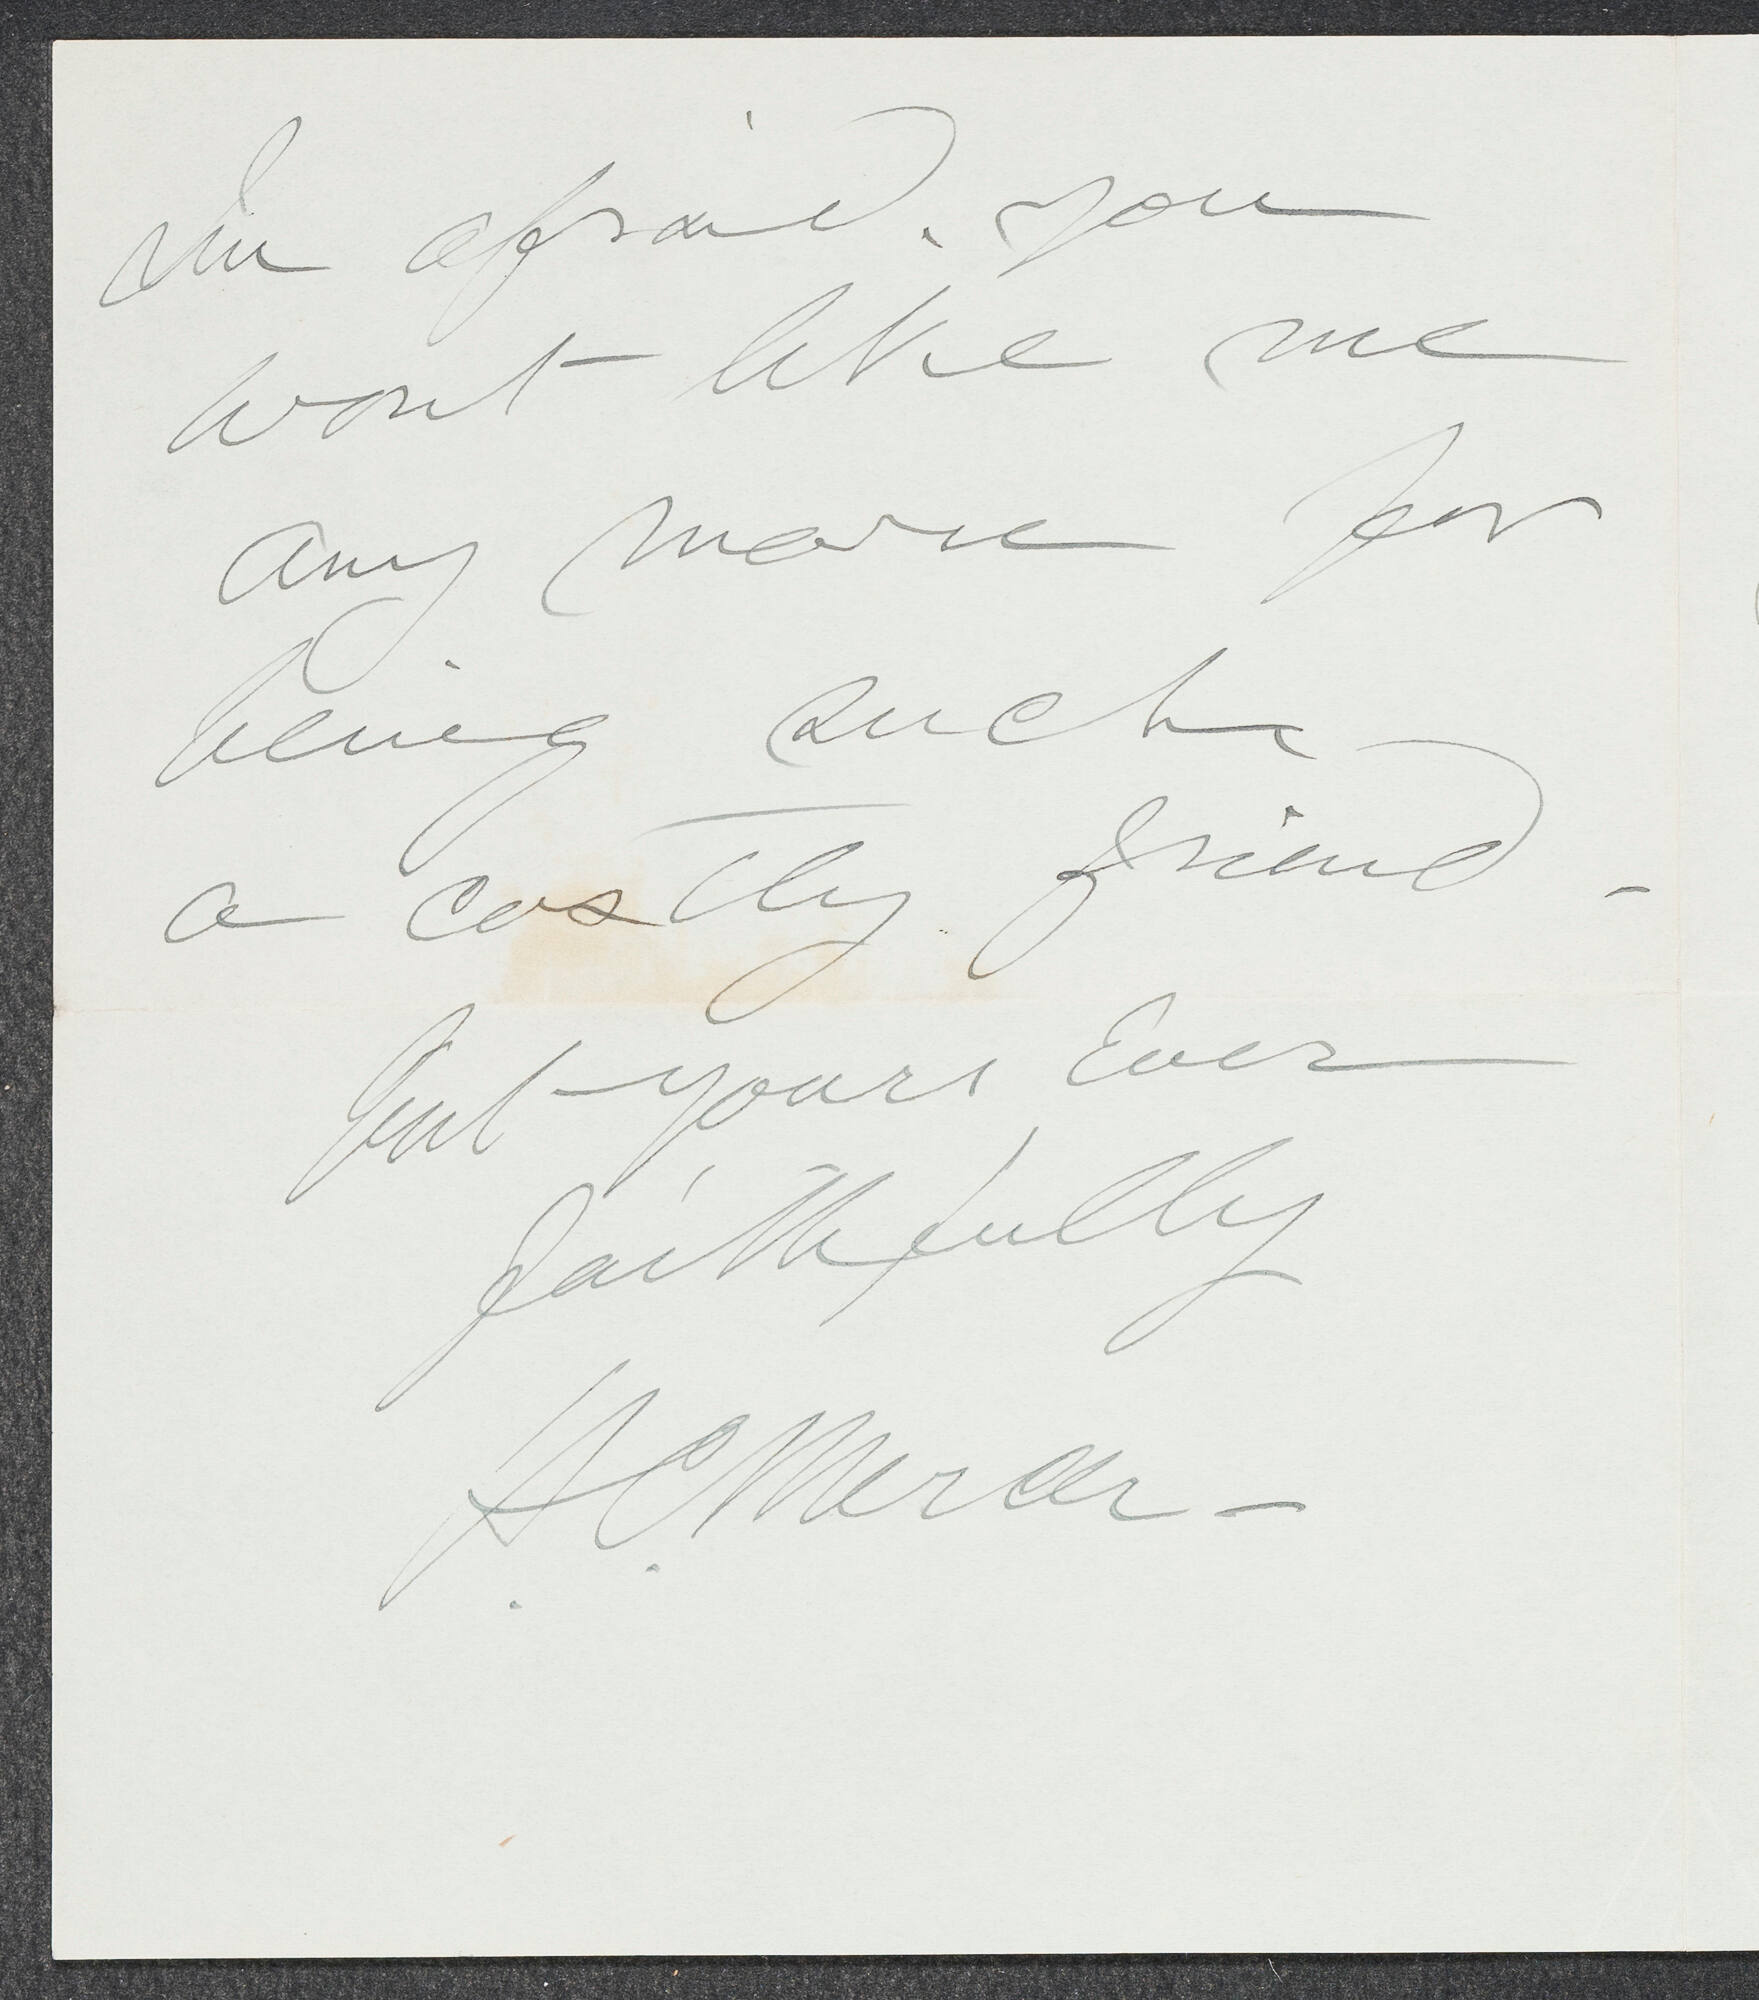 Im afraid. you
wont like me
any more for
being such
a costly friend -
but yours Ever
faithfully
H. C. Mercer -